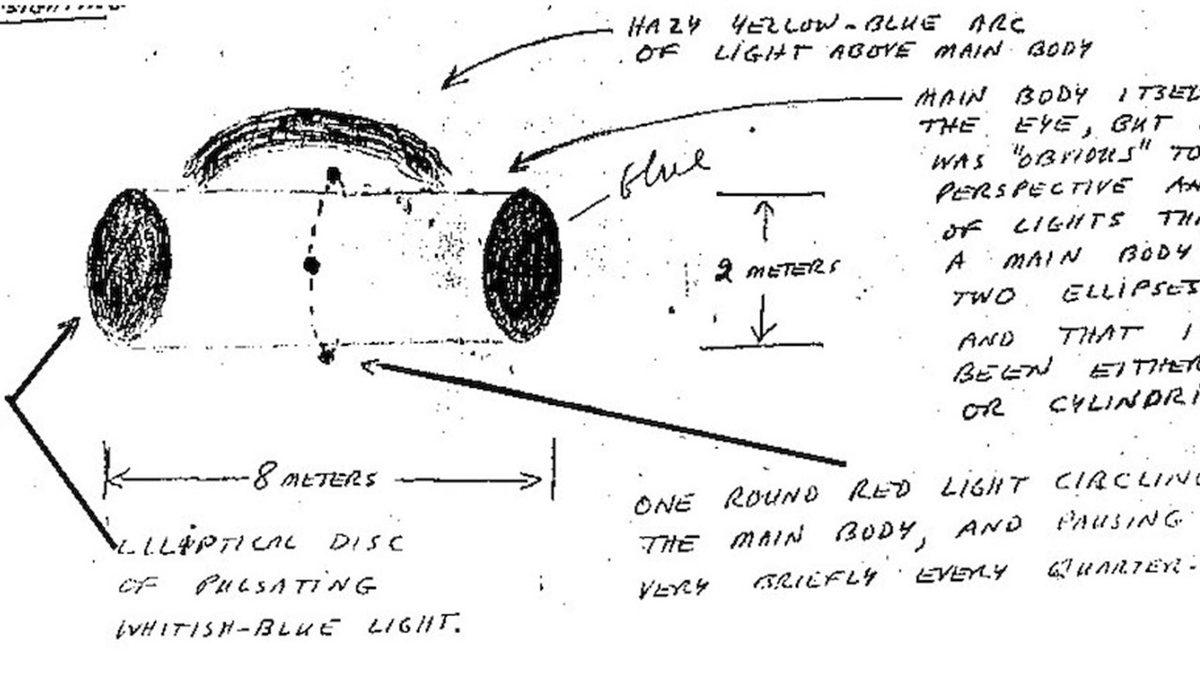 HAZY YELLOW-BLUE ARC
OF LIGHT ABOVE MAIN BODY
MAIN BODY ITSEL
THE EYE, BUT
WAS "OBVIOUS" TO
PERSPECTIVE AN
OF LIGHTS TH
A MAIN BODY
TWO ELLIPSES
AND THAT I
BEEN EITHER
OR CYLINDRI
Blue
2 METERS
8 METERS
ELLIPTICAL DISC
OF PULSATING
WHITISH-BLUE LIGHT.
ONE ROUND RED LIGHT CIRCLING
THE MAIN BODY, AND PAUSING
VERY BRIEFLY EVERY QUARTER.